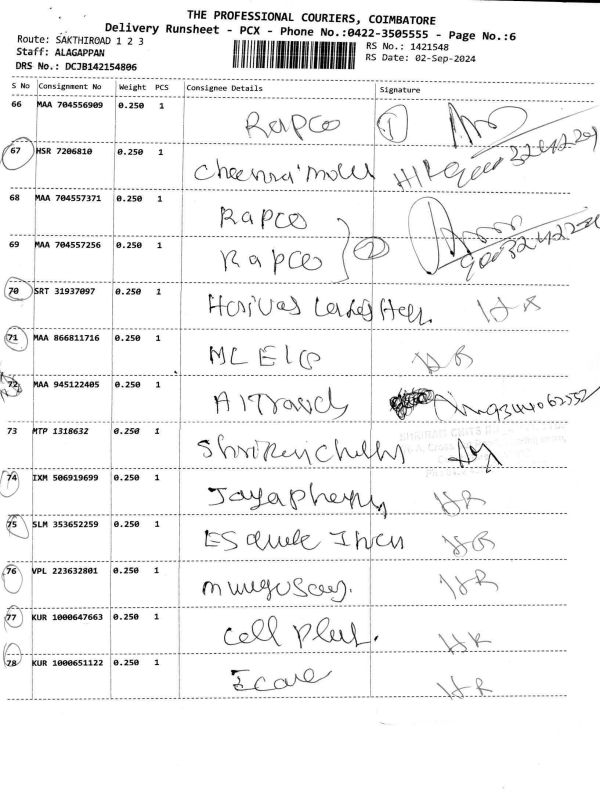 THE PROFESSIONAL COURIERS, COIMBATORE
Delivery Runsheet - PCX - Phone No.:0422-3505555 - Page No.:6
Route: SAKTHIROAD 1 2 3
RS No.: 1421548
Staff: ALAGAPPAN
RS Date: 02-Sep-2024
DRS No.: DCJB142154806
S No Consignment No Weight PCS Consignee Details Signature
66 MAA 704556909 0.250 1 Rapco 1
67 HSR 7206810 0.250 1
68 MAA 704557371 0.250 1 Rapco
69 MAA 704557256 0.250 1 Rapco 2
70 SRT 31937097 0.250 1 HR
71 MAA 866811716 0.250 1 HR
72 MAA 945122405 0.250 1
73 MTP 1318632 0.250 1
74 IXM 506919699 0.250 1 HR
75 SLM 353652259 0.250 1 HR
76 VPL 223632801 0.250 1 HR
77 KUR 1000647663 0.250 1 Cell Plus. HR
78 KUR 1000651122 0.250 1 Ecare HR